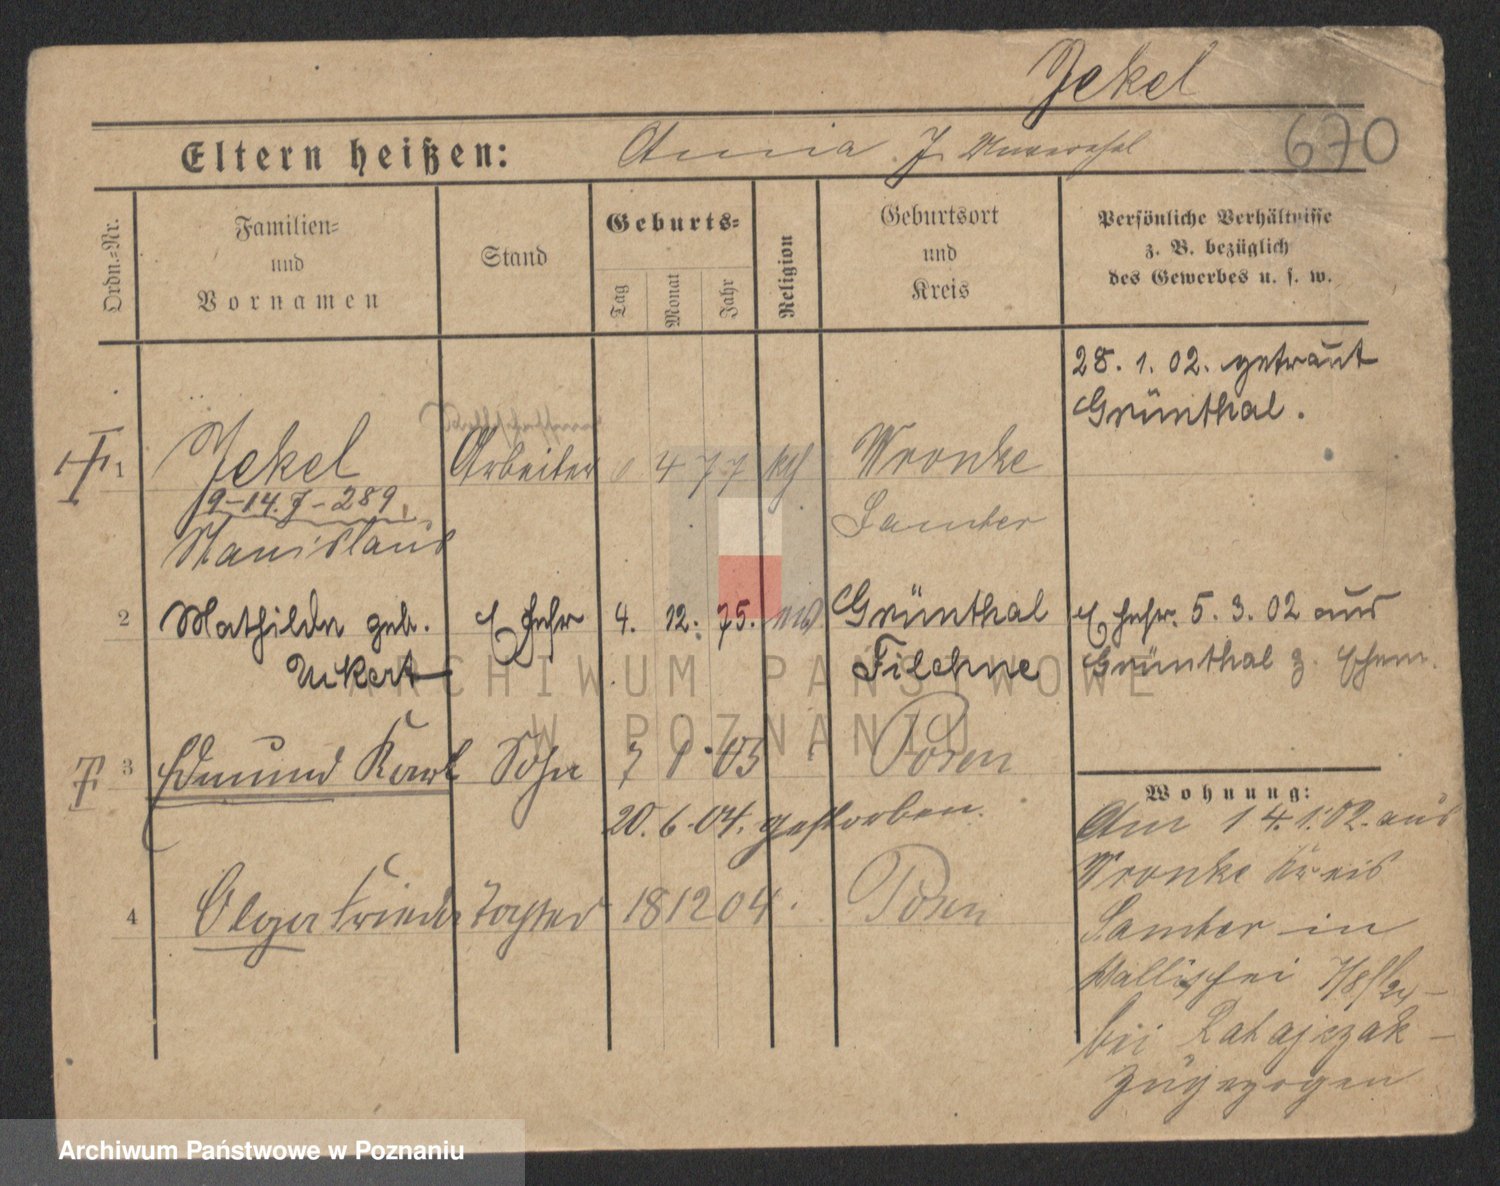 Jekel
Eltern heißen: Anna J.
670
Ordn.-Nr.
Familien-
und
Vornamen
Stand
Geburts-
Tag
Monat
Jahr
Religion
Geburtsort
und
Kreis
Persönliche Verhältnisse
z. B. bezüglich
des Gewerbes u. s. w.
28. 1. 02. getraut
Grünthal.
1 Jekel Arbeiter 4 77 kth Wronke
9-14. 7-289
Stanislaus Samter
2 Mathilde geb. Ehefr 4. 12. 75. Grünthal Ehefr. 5. 3. 02 aus
Uckert Filehne Grünthal z. Ehem.
3 Edmund Karl Sohn 7 1 03 Posen
20. 6. 04. gestorben.
4 Olga Frieda Tochter 18 12 04. Posen
Wohnung:
Am 14. 1. 02. aus
Wronke Kreis
Samter in
Wallischei 7/8
bei Ratajczak
zugezogen
ARCHIWUM PAŃSTWOWE
W POZNANIU
Archiwum Państwowe w Poznaniu